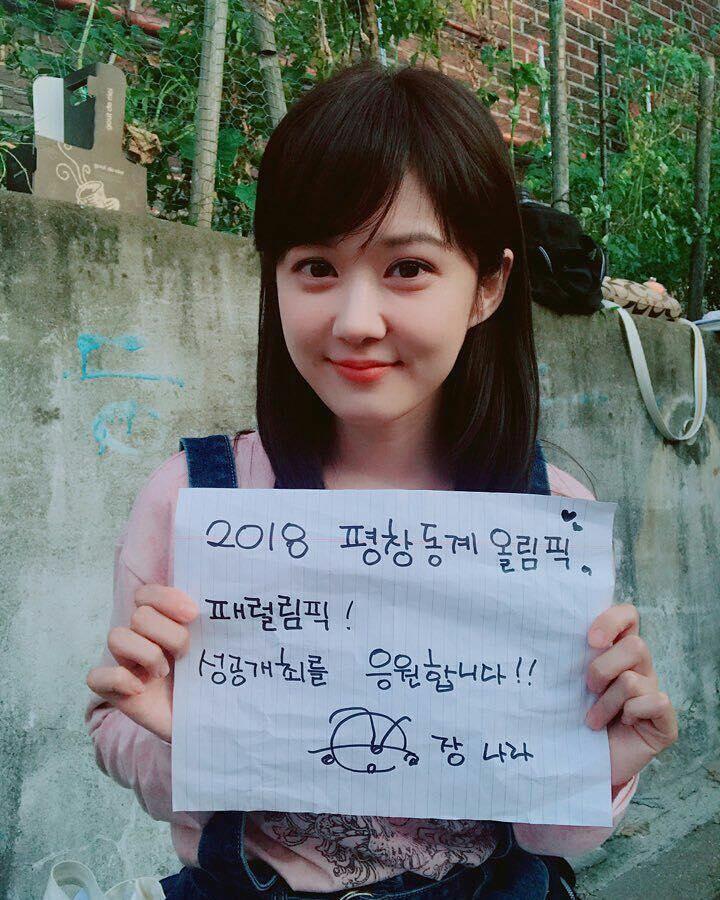 gout de moi
gout de moi
2018 평창동계올림픽,
패럴림픽!
성공개최를 응원합니다!!
장 나라